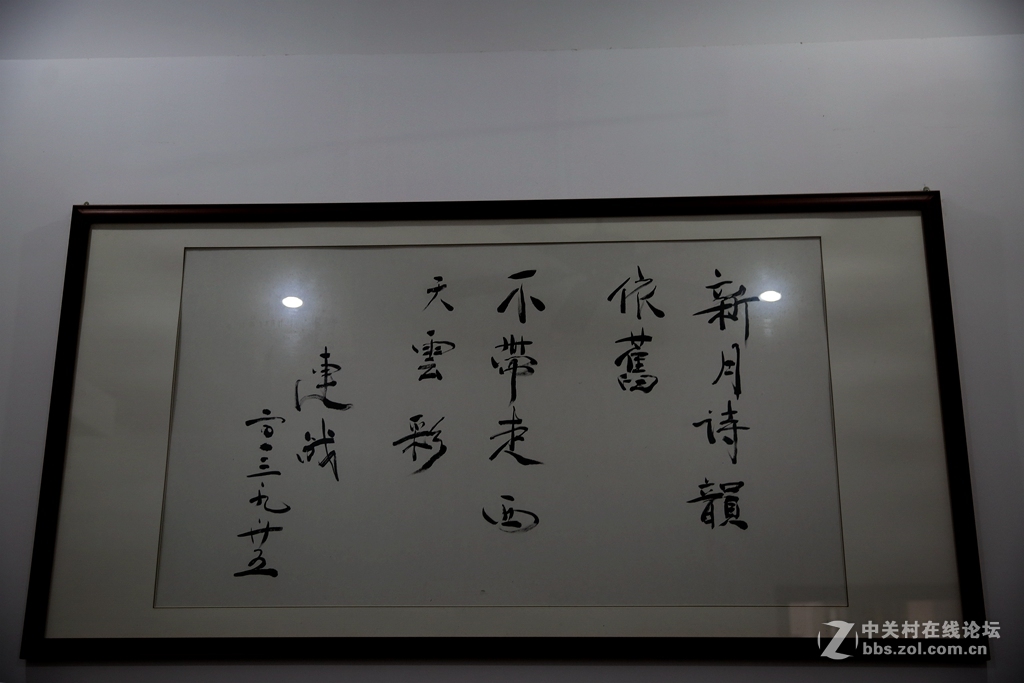 新月诗韻
依舊
不帶走西
天雲彩
連战
二〇一三九廿五
中关村在线论坛
bbs.zol.com.cn